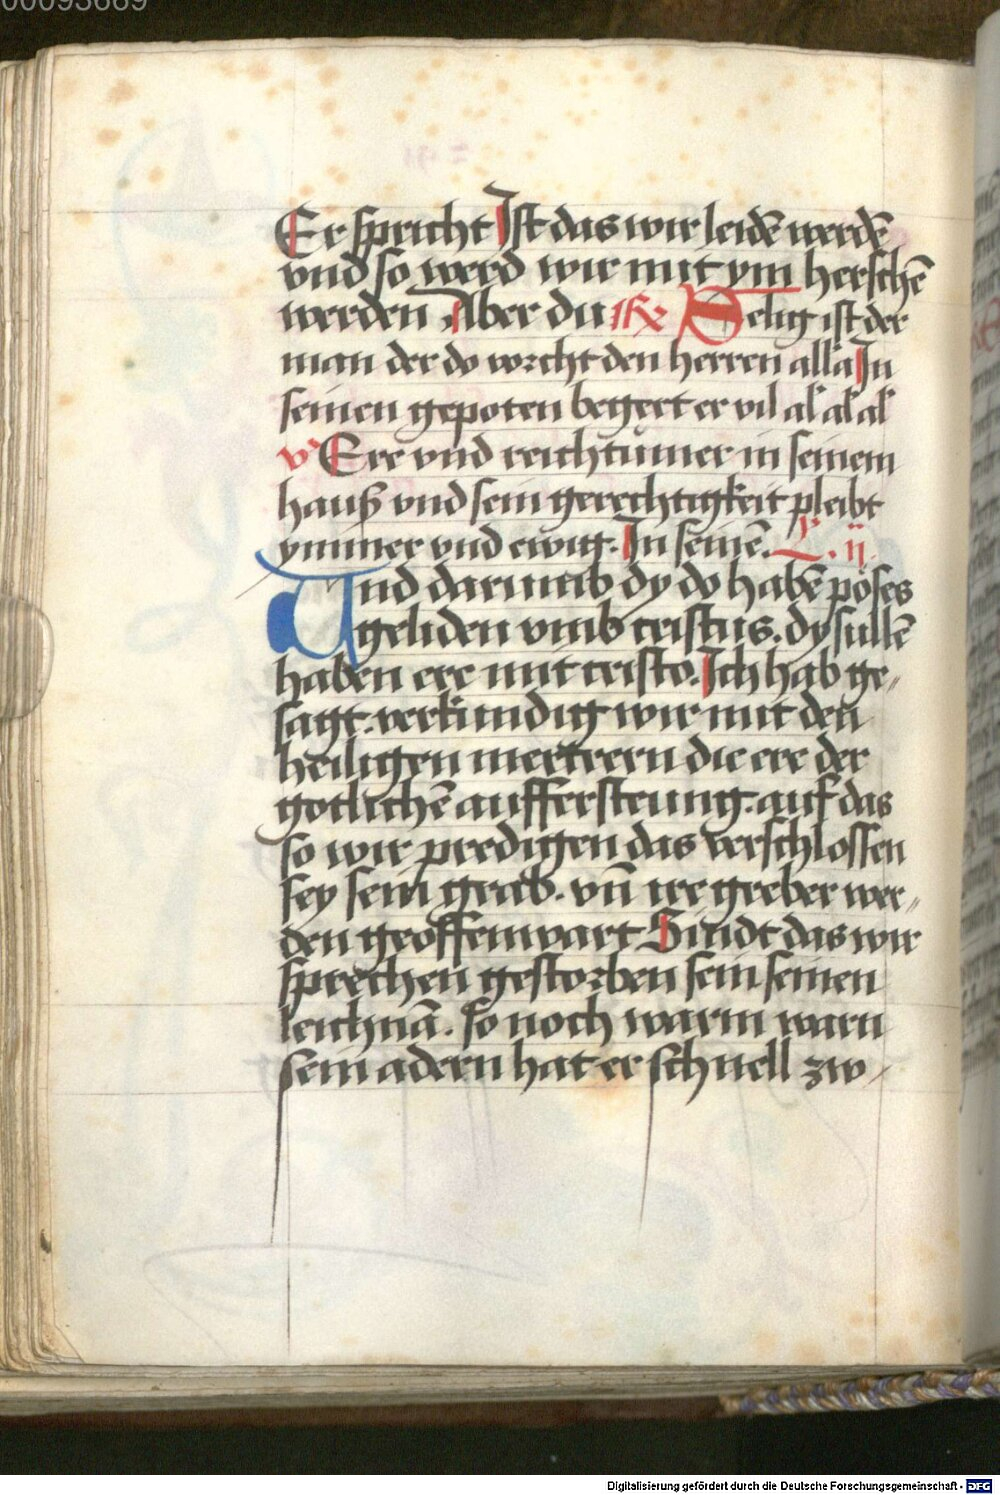 00093669
Er spricht Ist das wir leidē werdē
vnd so werd wir mit ym herschē
werden Aber du Rx Selig ist der
man der do vorcht den herren alla In
seinen gepoten begert er vil al' al' al'
v' Ere vnd reichtumer in seinem
hauß vnd sein gerechtigkeit pleibt
ymmer vnd ewig. In seinē. L. ij.
Und darumb dy do habē pöses
geliden vmb cristus. dy sullē
haben ere mit cristo. Ich hab ge„
sagt. verkundig wir mit den
heiligen mertrern die ere der
gotlichē auffersteung. auf das
so wir predigen das verschlossen
sey sein grab. vn̄ ire greber wer„
den geoffenwart Sindt das wir
sprechen gestorben sein seinen
leichnā. so noch warm warn
sein adern hat er schnell zw
Digitalisierung gefördert durch die Deutsche Forschungsgemeinschaft - DFG